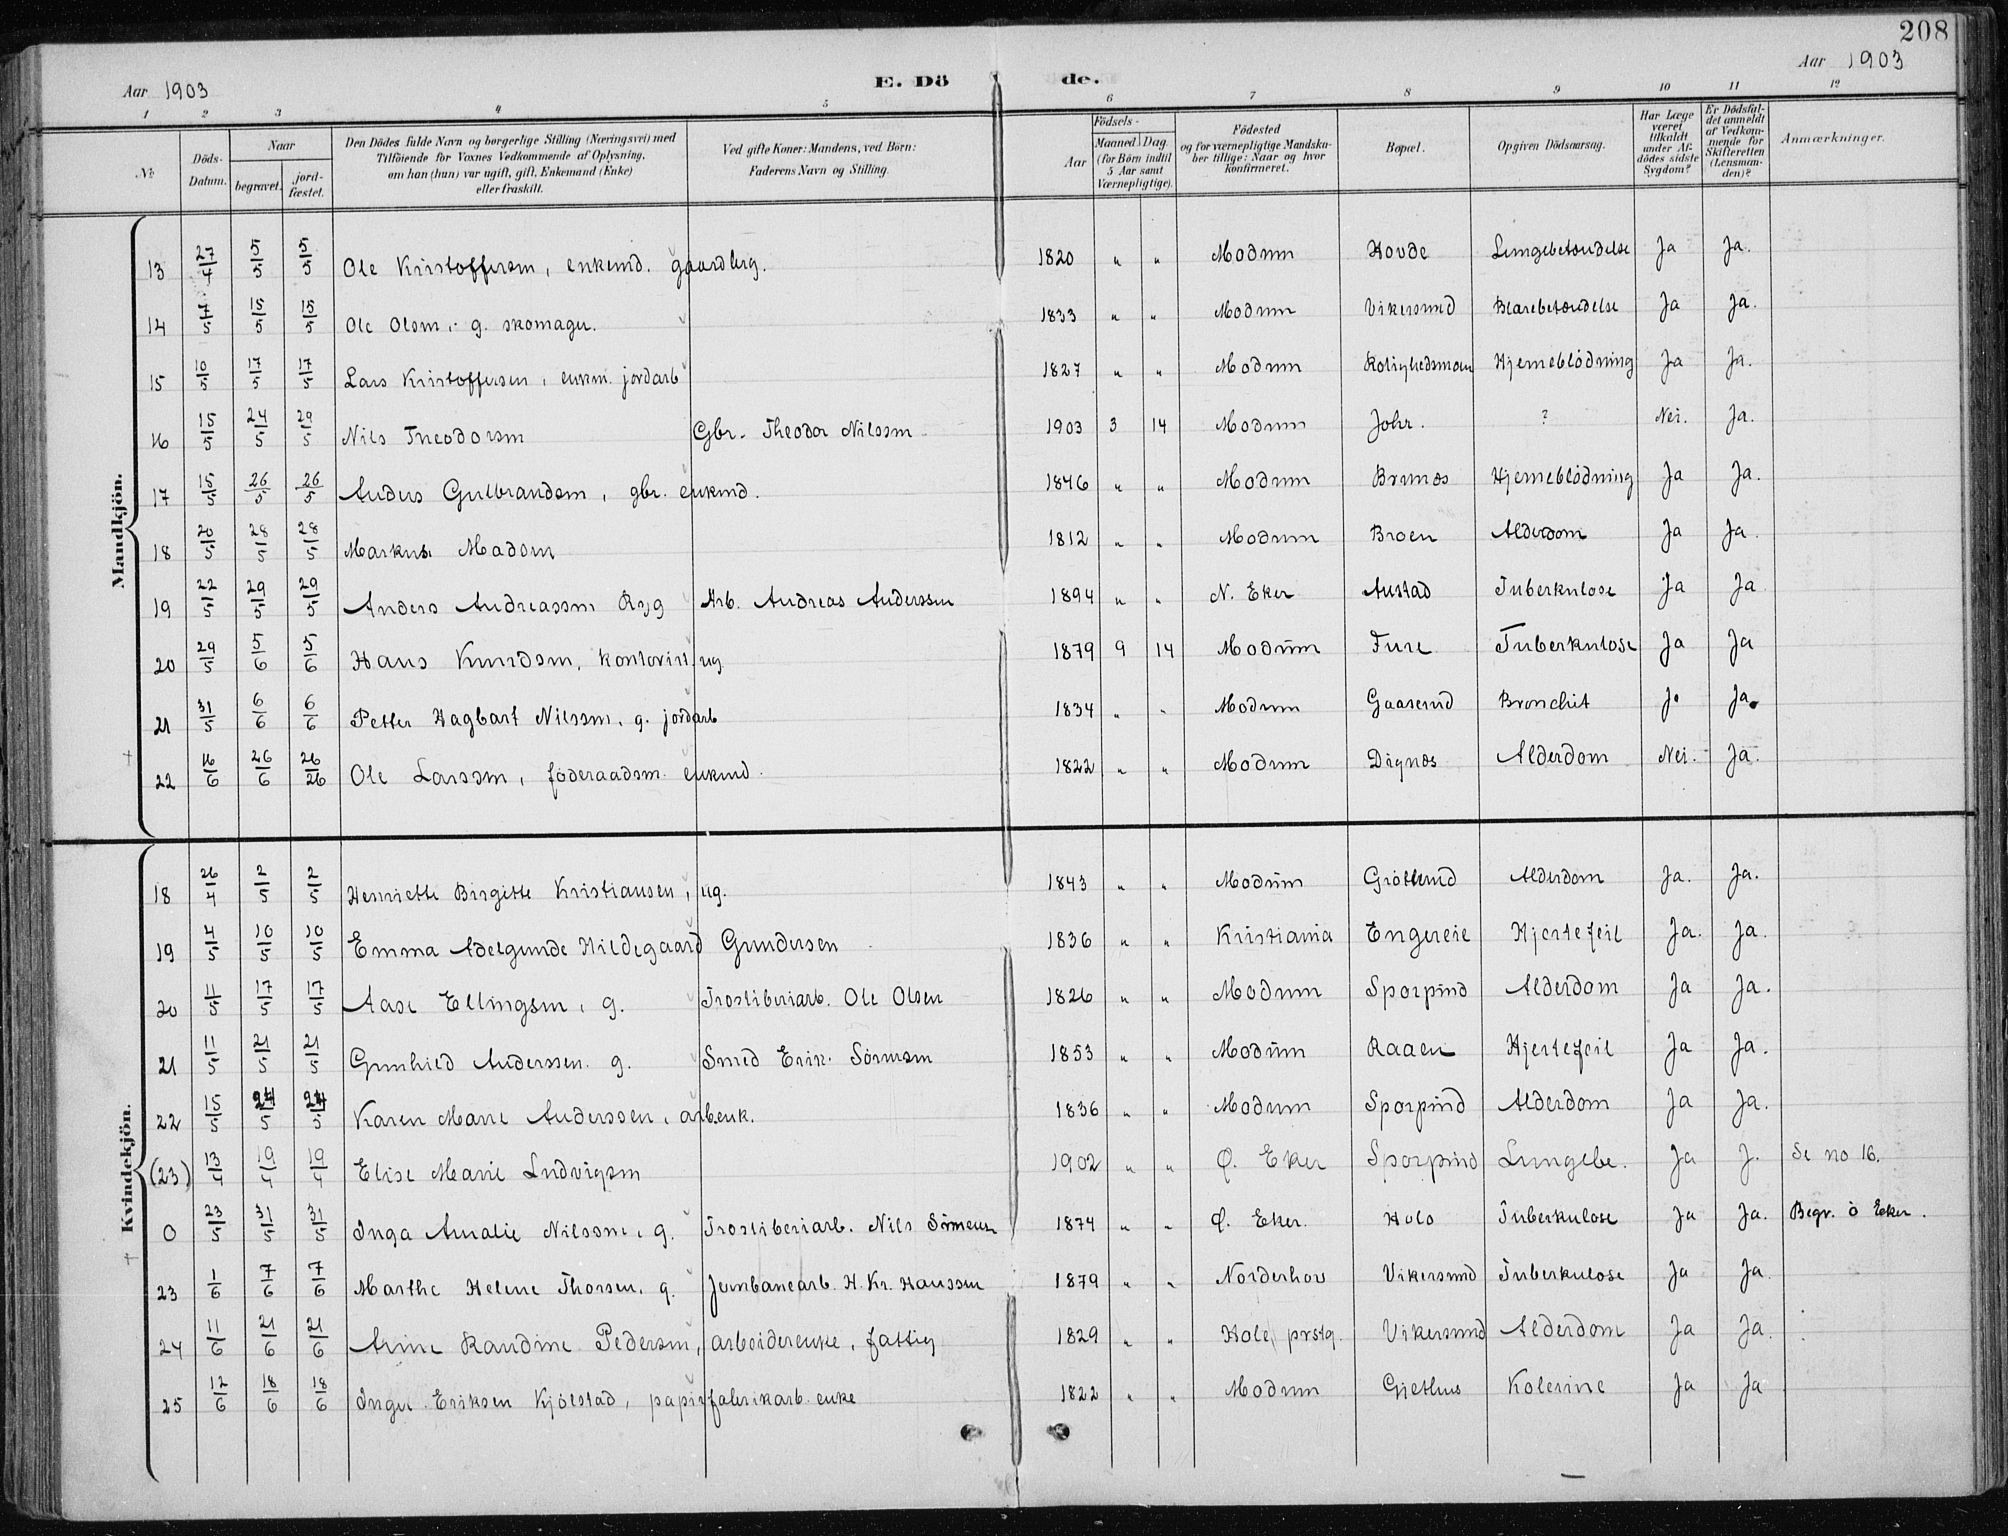 208
Aar 1903
E. Dö de.
Aar 1903
1 2 3 4 5 6 7 8 9 10 11 12
№
Döds-Datum.
Naar
begravet. jord-fæstet.
Den Dödes fulde Navn og borgerlige Stilling (Næringsvei) med
Tilföiende for Voxnes Vedkommende af Oplysning,
om han (hun) var ugift, gift, Enkemand (Enke)
eller fraskilt.
Ved gifte Koner: Mandens, ved Börn:
Faderens Navn og Stilling.
Aar
Födsels-
Maaned. Dag.
(for Börn indtil
5 Aar samt
Værnepligtige).
Födested
og for værnepligtige Mandska-
ber tillige: Naar og hvor
konfirmeret.
Bopæl.
Opgiven Dödsaarsag.
Har Læge
været
tilkaldt
under Af-
dödes sidste
Sygdom?
Er Dödsfal-
det anmeldt
af Vedkom-
mende for
Skifteretten
(Lensman-
den)?
Anmærkninger.
Mandkjön.
13 27/4 5/5 5/5 Ole Kristoffersen, enkemd. gaardbrg. 1820 " " Modum Hovde Lungebetændelse Ja Ja.
14 7/5 15/5 15/5 Ole Olsen, g. skomager. 1833 " " Modum Vikersund Blærebetændelse Ja Ja.
15 10/5 17/5 17/5 Lars Kristoffersen, enkm. jordarb 1827 " " Modum Rolighedsmoen Hjerneblödning Ja Ja.
16 15/5 24/5 29/5 Nils Theodorsen Gbr. Theodor Nilssen 1903 3 14 Modum Johr. ? Nei. Ja.
17 15/5 26/5 26/5 Anders Gulbrandsen, gbr. enkemd. 1846 " " Modum Brunæs Hjerneblödning Ja Ja.
18 20/5 28/5 28/5 Markus Madsen 1812 " " Modum Broen Alderdom Ja Ja.
19 22/5 29/5 29/5 Anders Andreassen Ryg Arb. Andreas Anderssen 1894 " " N. Eker Austad Tuberkulose Ja Ja
20 29/5 5/6 5/6 Hans Knudsen, kontorist, ug. 1879 9 14 Modum Fure Tuberkulose Ja Ja
21 31/5 6/6 6/6 Petter Hagbart Nilssen, g. jordarb 1834 " " Modum Gaaserud Bronchit J. Ja.
22 16/6 26/6 26/26 Ole Larssen, föderaadsm. enkemd. 1822 " " Modum Dignæs Alderdom Nei. Ja.
Kvindekjön.
18 26/4 2/5 2/5 Henriette Birgitte Kristiansen, ug. 1843 " " Modum Gröthend Alderdom Ja. Ja.
19 4/5 10/5 10/5 Emma Adelgunde Hildegaard Gundersen 1836 " " Kristiania Engereie Hjertefeil Ja. Ja.
20 11/5 17/5 17/5 Aase Ellingsen, g. Træsliberiarb. Ole Olsen 1826 " " Modum Sporpind Alderdom Ja Ja.
21 11/5 21/5 21/5 Gunhild Anderssen. g. Smed Erik Sörensen 1853 " " Modum Raaen Hjertefeil Ja Ja.
22 15/5 24/5 24/5 Karen Marie Anderssen, arb.enk. 1836 " " Modum Sporpind Alderdom Ja Ja.
(23) 13/4 19/4 19/4 Elise Marie Ludvigsen 1902 " " Ø. Eker Sporpind Lungebe. Ja J. Se no 16.
0 23/5 31/5 31/5 Inga Amalie Nilssen, g. Træsliberiarb. Nils Simensen 1874 " " Ø. Eker. Holo Tuberkulose Ja Ja. Begr. ö Eker.
23 1/6 7/6 7/6 Marthe Helene Thorsen, g. Jernbanearb. H. Kr. Hanssen 1879 " " Norderhov Vikersund Tuberkulose Ja Ja
24 11/6 21/6 21/6 Anne Randine Pedersen, arbeiderenke, fattig 1829 " " Hole prstg. Vikersund Alderdom Ja Ja.
25 12/6 18/6 18/6 Inger Eriksen Kjölstad, papirfabrikarb. enke 1822 " " Modum Gjethus Kolerine Ja Ja